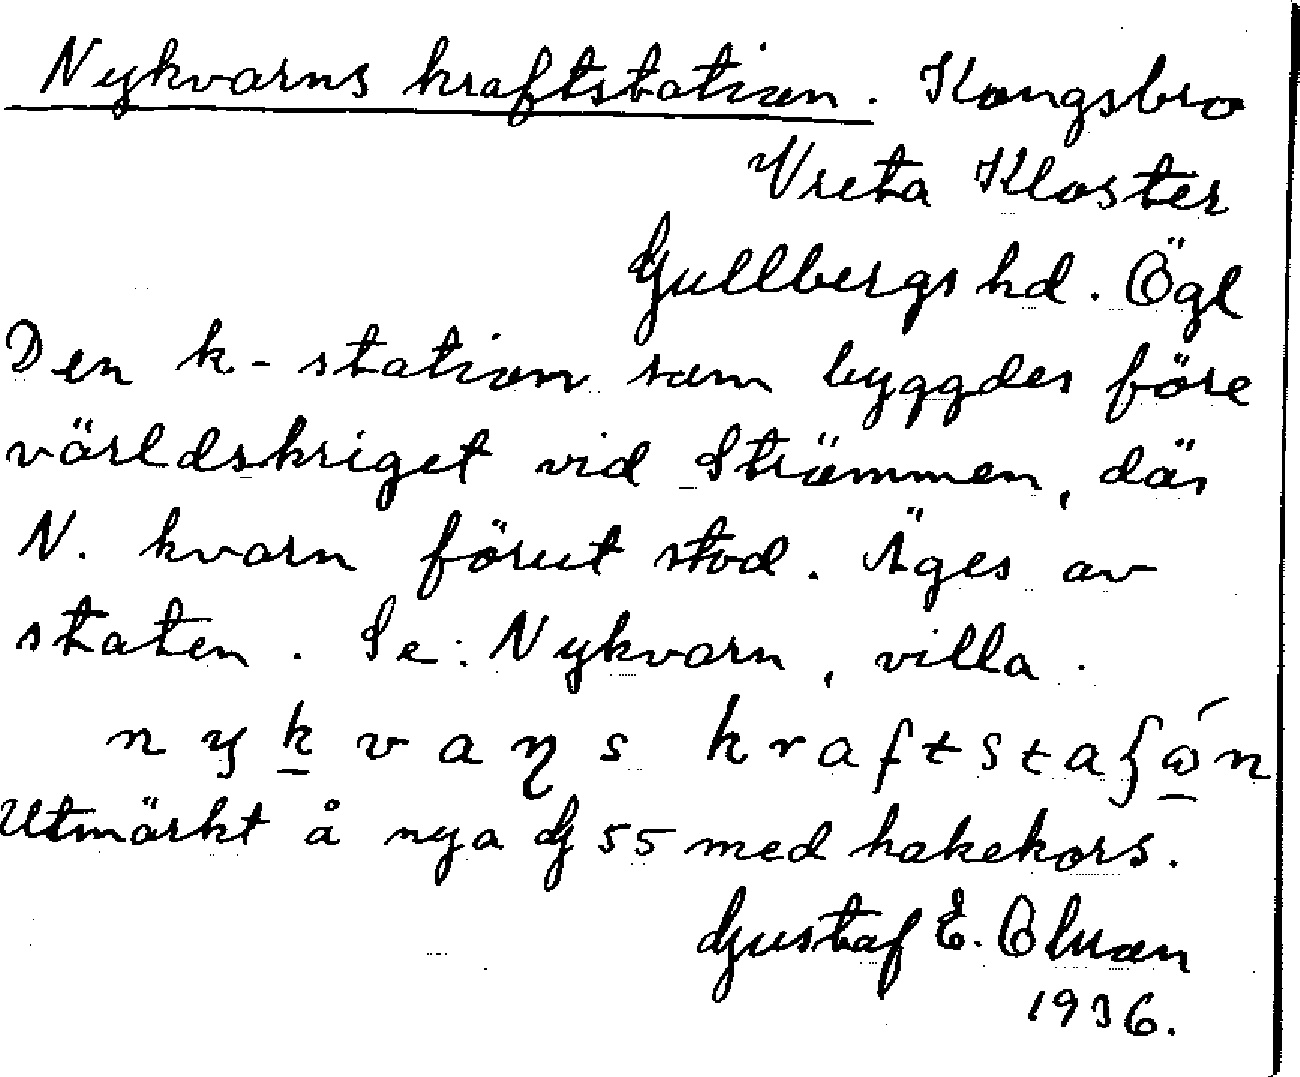 Nykvarns kraftstation. Kungsbro
Vreta Kloster
Gullbergs hd. Ögl
Den k-station som byggdes före
världskriget vid Strömmen, där
N. kvarn förut stod. Äges av
staten. Se: Nykvarn, villa.
Utmärkt å nya G 55 med hakekors.
Gustaf E.
1936.